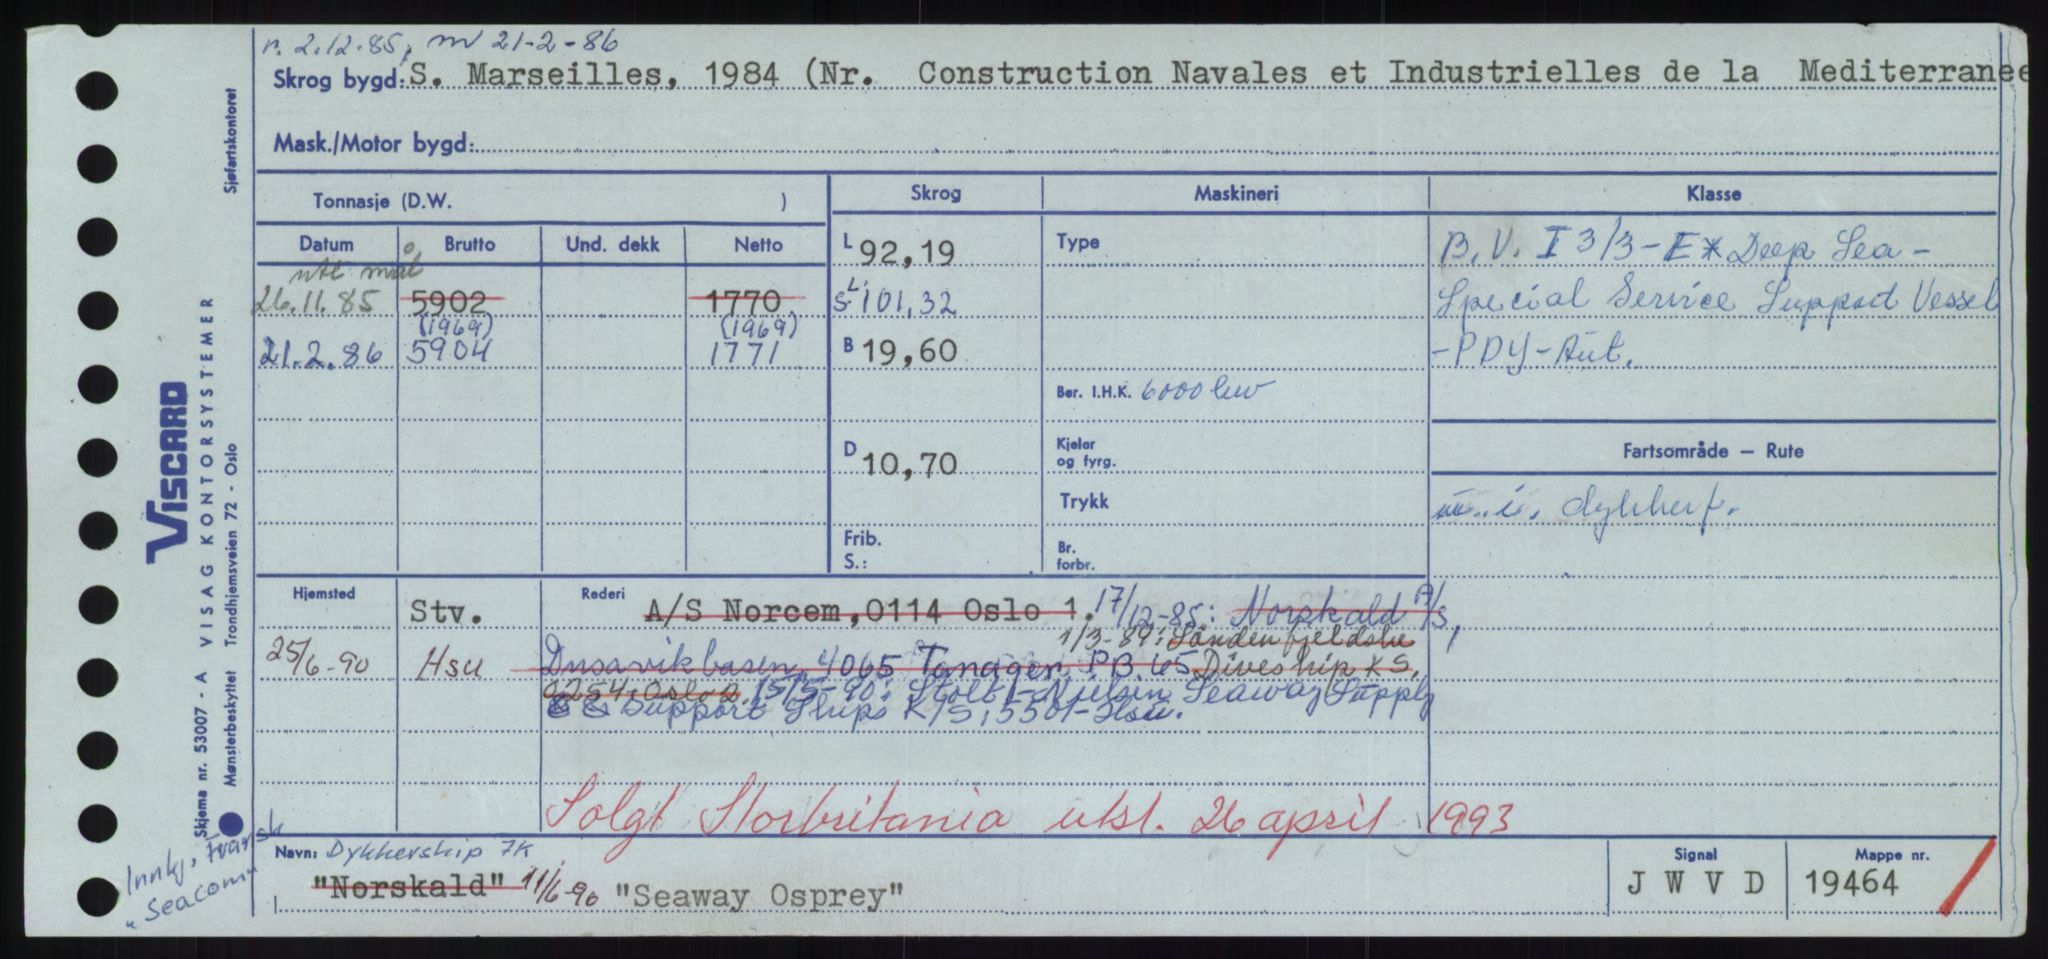 n. 2.12.85, nv 21-2-86
Skrog bygd: S. Marseilles, 1984 (Nr. Construction Navales et Industrielles de la Mediterranee
Mask./Motor bygd:
Tonnasje (D.W. )
Skrog
Maskineri
Klasse
Datum
Brutto
Und. dekk
Netto
26.11.85 5902 1770
(1969) (1969)
21.2.86 5904 1771
L 92,19
S.L. 101,32
B 19,60
D 10,70
Frib.
S.:
Type
Ber. I.H.K. 6000 kw
Kjeler
og fyrg.
Trykk
Br.
forbr.
B.V. I 3/3-E* Deep Sea -
Special Service Support Vessel
-PDY-Aut.
Fartsområde — Rute
u.i. dykkerf.
Hjemsted
Stv.
25/6-90 Hsu
Rederi
A/S Norcem,0114 Oslo 1. 17/12-85: Norskald A/S,
1/3-89: Søndenfjeldske
Dusavikbasen, 4065 Tanager P.B. 65 Diveship KS,
0254 Oslo 2. 15/5-90: Stolt-Nielsen Seaway Supply
& Support Ships K/S, 5501-Hsu.
Solgt Storbritania utsl. 26 april 1993
Navn: Dykkerskip 7K
"Norskald" 11/6-90 "Seaway Osprey"
Signal
J W V D
Mappe nr.
19464
Innkj. fransk
"Seacom"
Skjema nr. 53007 - A VISAG KONTORSYSTEMER
Mønsterbeskyttet Trondhjemsveien 72 - Oslo
Sjøfartskontoret
VISCARD